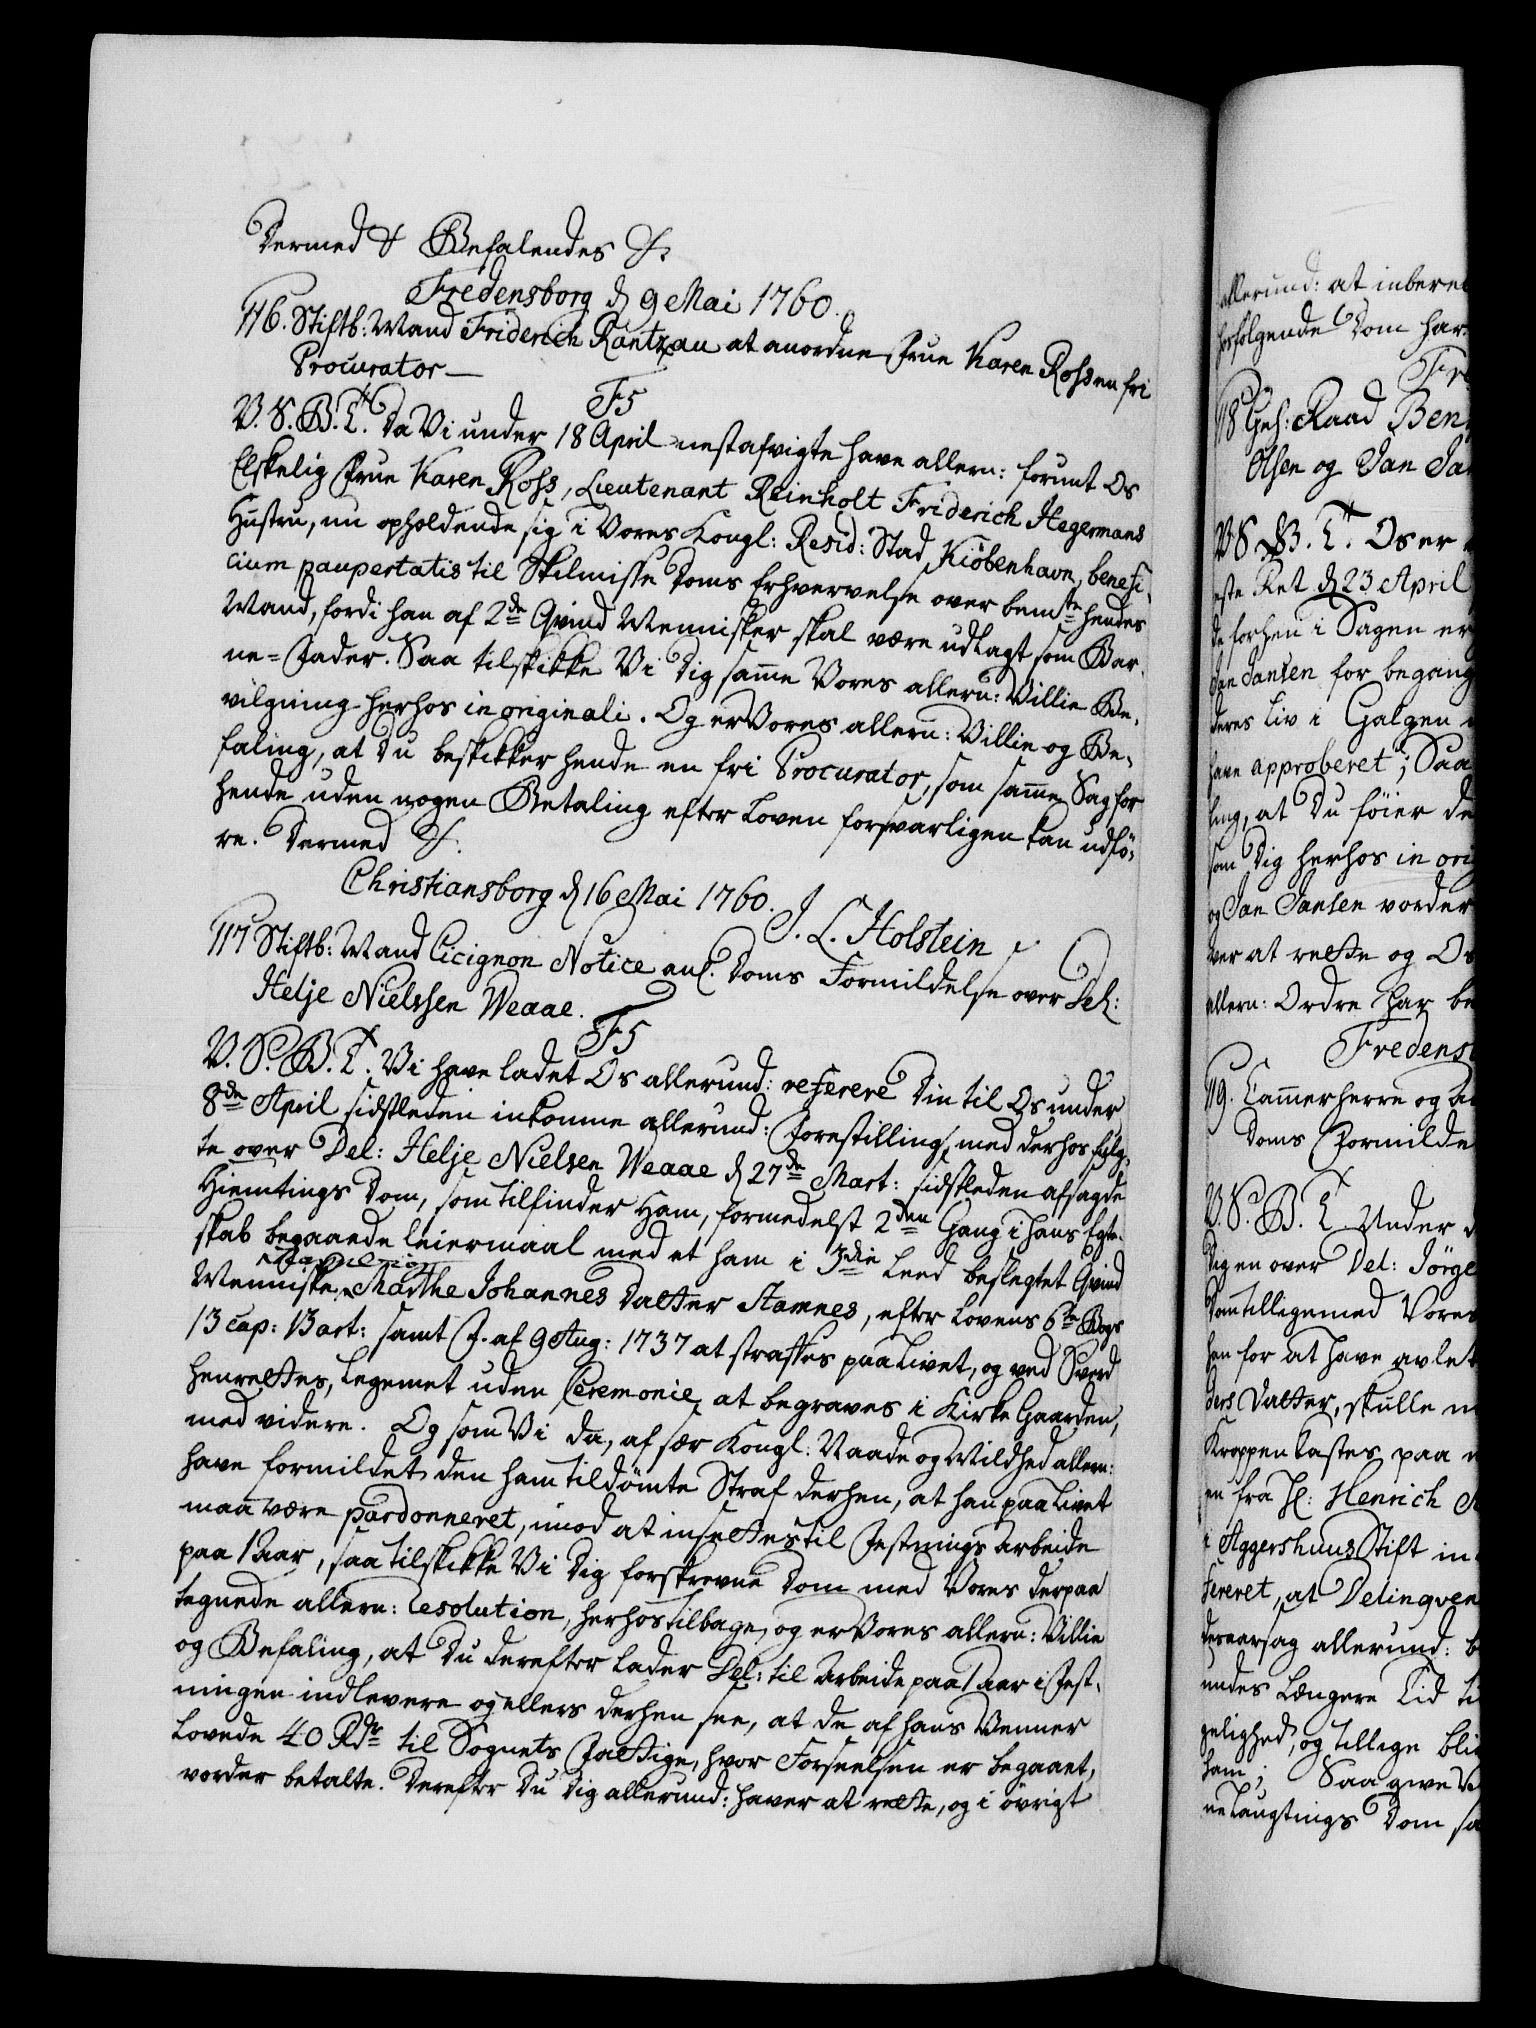 Dermed & Befalendes &.
Fredensborg d 9 Mai 1760.
116. Stiftb: Mand Friderich Rantzau at anordne Frue Karen Ross en fri
Procurator —
F5
V. S. B. T. Da Vi under 18 April nestafvigte have allern: forunt Os
Elskelig Frue Karen Ross, Lieutenant Reinholt Friderich Hegermans
Hustru, nu opholdende sig i Vores Kongl: Resid: Stad Kiöbenhavn, benefi,
cium paupertatis til Skilmisse Doms Erhvervelse over bemte hendes
Mand, fordi han af 2de Qvind Mennisker skal være udlagt som Bar,
ne-Fader. Saa tilskikke Vi Dig samme Vores allern: Villie Be,
vilgning herhos in originali. Og er Vores allern: Villie og Be,
faling, at Du beskikker hende en fri Procurator, som samme Sag for
hende uden nogen Betaling efter Loven forsvarligen kan udfö,
re. Dermed &.
Christiansborg d 16 Mai 1760.
J. L. Holstein
117 Stiftb: Mand Cicignon Notice anl. Doms Formildelse over Del:
Helje Nielssen Weaae.
F5
V. S. B. T. Vi have ladet Os allerund: referere Din til Os under
8de April sidstleden inkomne allerund: Forestilling, med derhos fulg,
te over Del: Helje Nielsen Weaae d 27de Mart: sidstleden afsagde
Hiemtings Dom, som tilfinder Ham, formedelst 2den Gang i hans Egte,
skab begaaede Leiermaal med et ham i 3die Leed beslegtet Qvind
Menniske, Marthe Johannes Datter Stamnes, efter Lovens 6te Bogs
13 cap: 13 art: samt F. af 9 Aug: 1737 at straffes paa Livet, og ved Sverd
henrettes, Legemet uden Ceremonie at begraves i Kirke Gaarden,
med videre. Og som Vi da, af sær Kongl: Naade og Mildhed allern:
have formildet den ham tildömte Straf derhen, at han paa Livet
maa være pardonneret, imod at insettes til Festnings Arbeide
paa 1 Aar, saa tilskikke Vi Dig forskrevne Dom med Vores derpaa
tegnede allern: Resolution, herhos tilbage, og er Vores allern: Villie
og Befaling, at Du derefter lader Del: til Arbeide paa 1 Aar i Fest,
ningen indlevere og ellers derhen see, at de af hans Venner
lovede 40 Rdr til Sognets Fattige, hvor Forseelsen er begaaet,
vorder betalte. Derefter Du Dig allerund: haver at rette, og i övrigt
allerund: at inberet
hosfölgende Dom har
Fre
118 Geh: Raad Ben
Olsen og Jan Jan
V S B. T. Os er
este Ret d 23 April
de forhen i Sagen er
Jan Jansen for begang
deres Liv i Galgen
have approberet; Saa
ling, at Du föier de
som Dig herhos in orig
og Jan Jansen vorder
ver at rette og Os
allern: Ordre har be
Fredens
119. Cammerherre og
Doms Formilde
V. S. B. T Under d
Dig en over Del: Jörge
Dom tilligemed Vores
han for at have avlet
ders Datter, skulle m
Kroppen kastes paa
en fra H: Henrich
i Aggershuus Stift in
fereret, at Delinqven
desaarsag allerund: b
undes Længere Tid ti
gelighed, og tillige bli
ham; Saa give V
ne Laugtings Dom sa